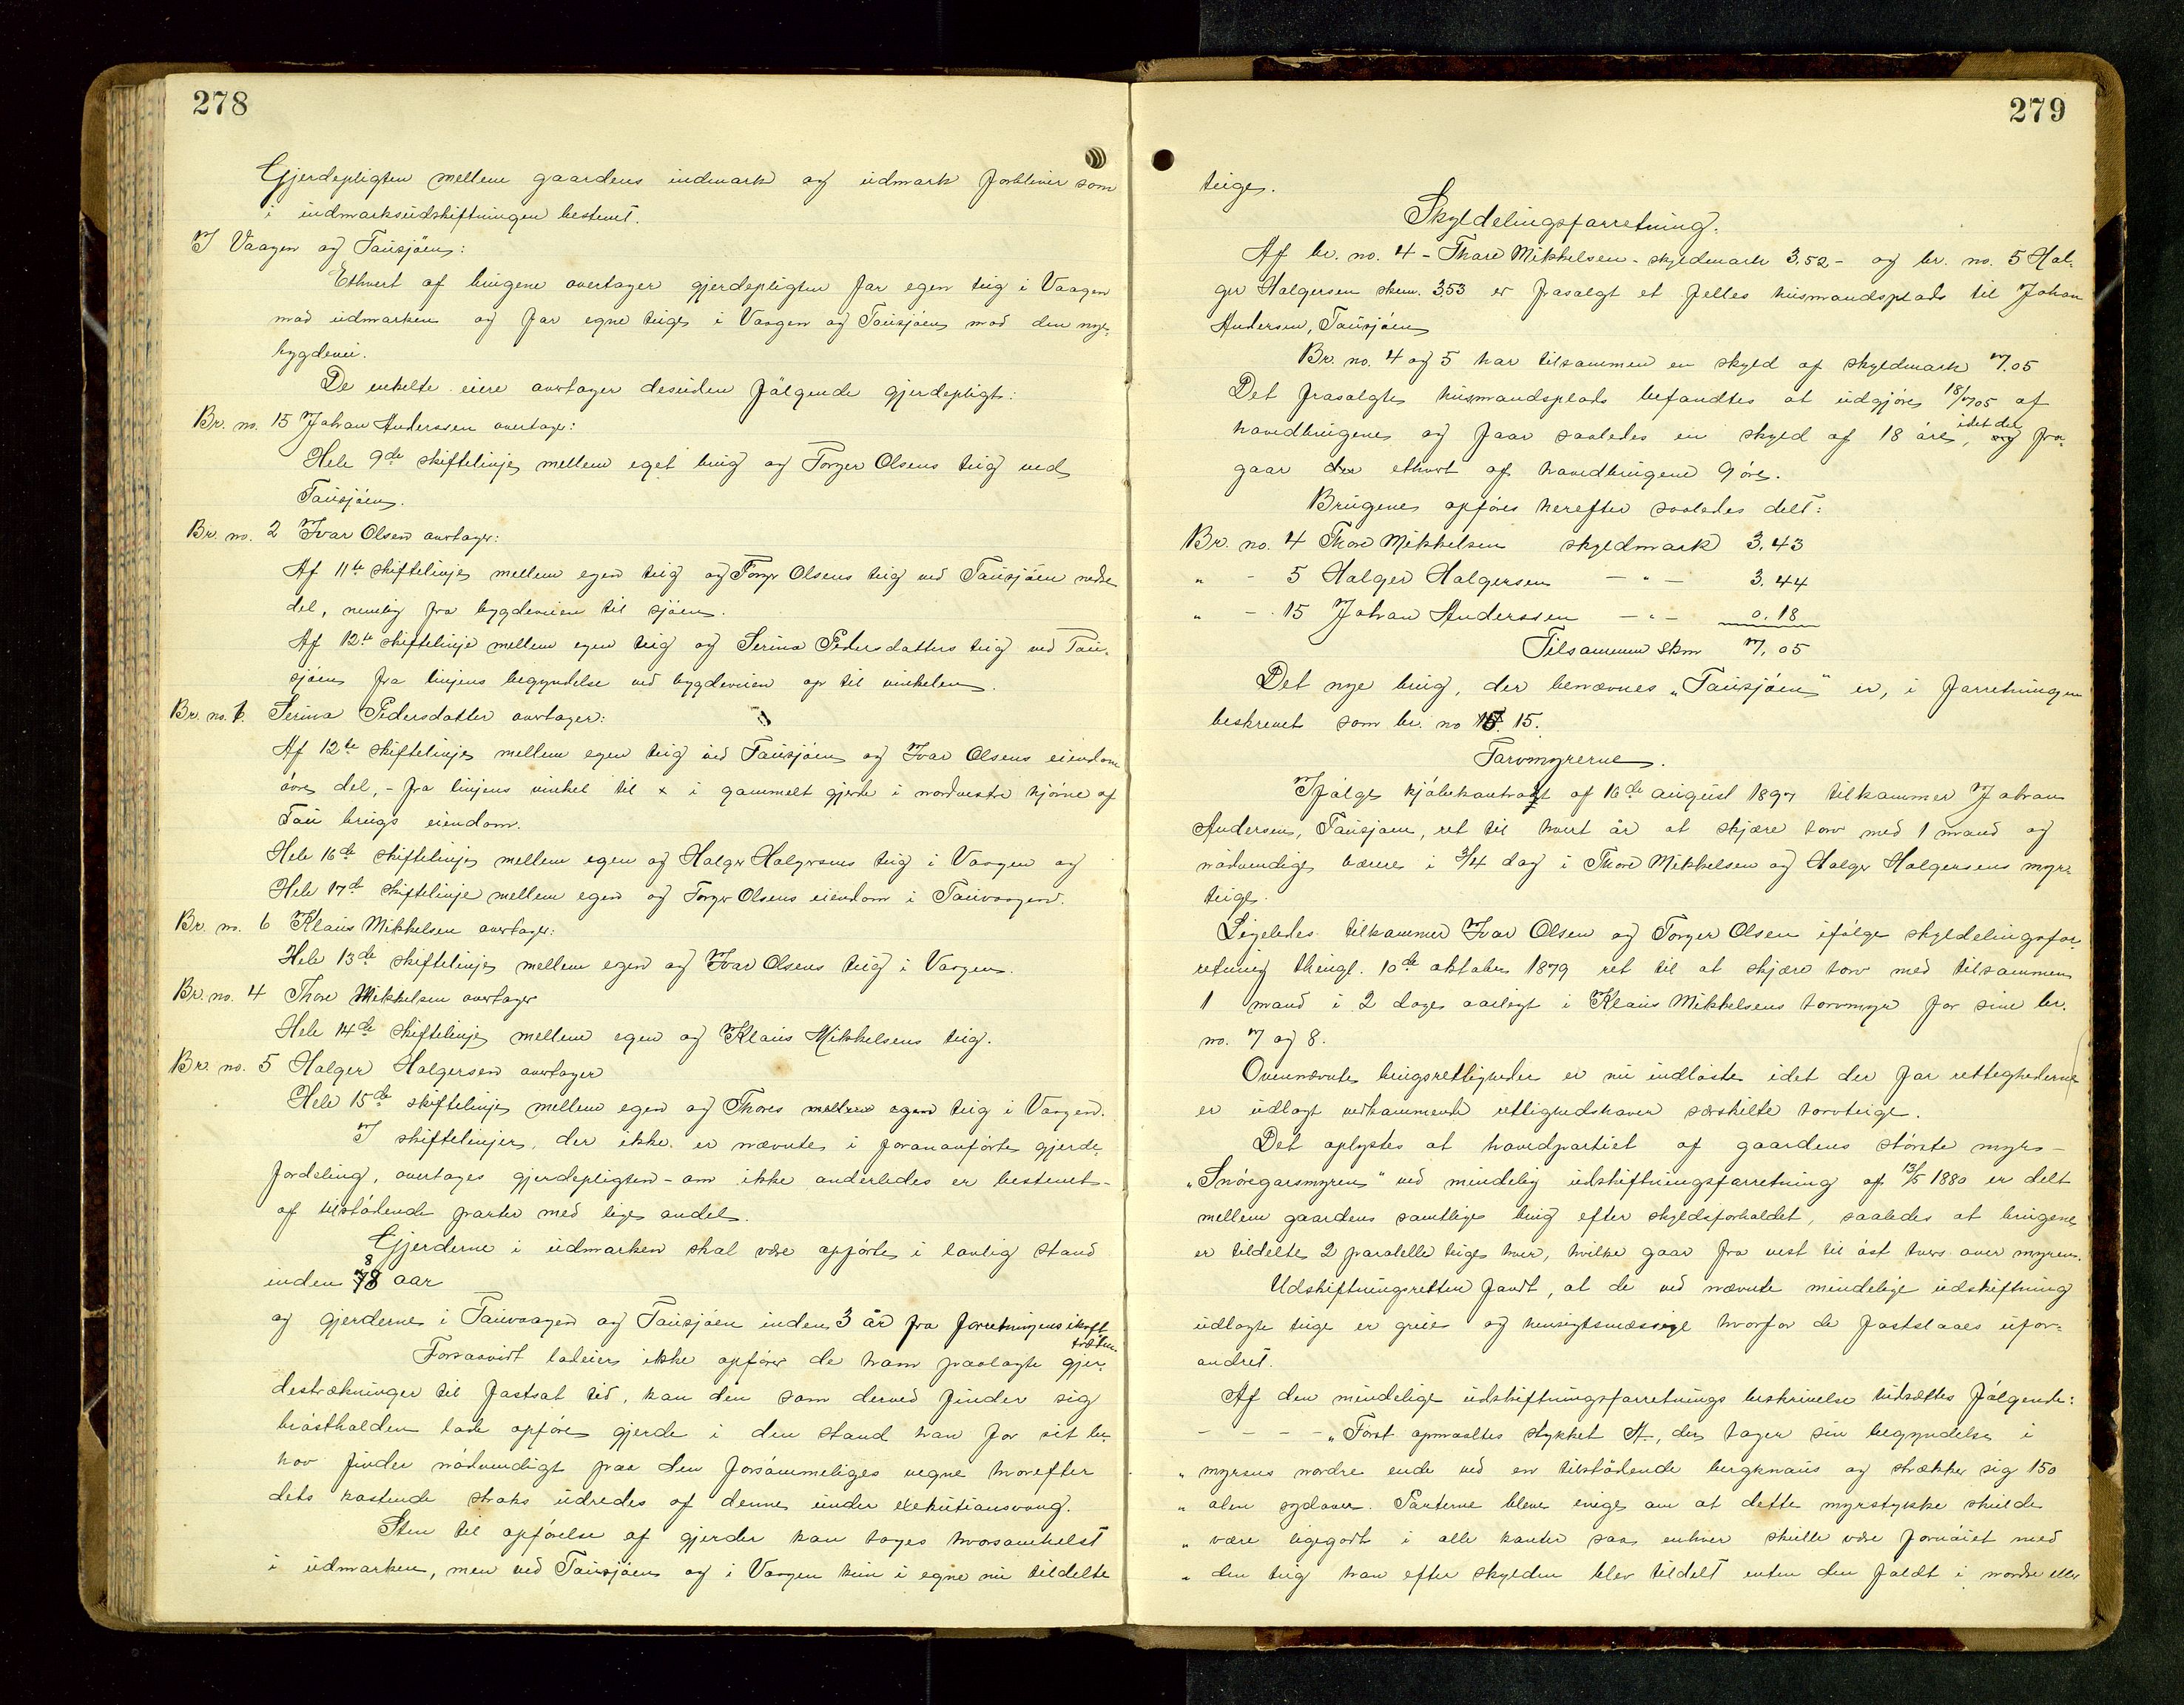 278
Gjerdepligten mellem gaardens indmark og udmark forbliver som
i indmarksudskiftningen bestemt.
I Vaagen og Tausjøen:
Ethvert af brugene overtager gjerdepligten for egen teig i Vaagen
mod udmarken og for egne teige i Vaagen og Tausjøen mod den nye
bygdevei.
De enkelte eiere overtager desuden følgende gjerdepligt:
Br. no. 15 Johan Anderssen overtager:
Hele 9de skiftelinje mellem eget brug og Torger Olsens teig ved
Tausjøen.
Br. no. 2 Ivar Olsen overtager:
Af 11te skiftelinje mellem egen teig og Torger Olsens teig ved Tausjøen nedre
del, nemlig fra bygdeveien til sjøen.
Af 12te skiftelinje mellem egen teig og Serina Pedersdatters teig ved Tau-
sjøen fra linjens begyndelse ved bygdeveien op til vinkelen.
Br. no. 1. Serina Pedersdatter overtager:
Af 12te skiftelinje mellem egen teig ved Tausjøen og Ivar Olsens eiendom
øvre del, - fra linjens vinkel til x i gammelt gjerde i nordvestre hjørne af
Tau brugs eiendom.
Hele 16de skiftelinje mellem egen og Holger Holgersens teig i Vaagen og
Hele 17de skiftelinje mellem egen og Torger Olsens eiendom i Tauvaagen.
Br. no. 6 Klaus Mikkelsen overtager:
Hele 13de skiftelinje mellem egen og Ivar Olsens teig i Vaagen.
Br. no. 4 Thore Mikkelsen overtager
Hele 14de skiftelinje mellem egen og Klaus Mikkelsens teig.
Br. no. 5 Holger Holgersen overtager
Hele 15de skiftelinje mellem egen og Thores mellem egen teig i Vaagen.
I skiftelinjer, der ikke er nævnte i forananførte gjerde-
fordeling, overtages gjerdepligten - om ikke anderledes er bestemt -
af tilstødende parter med lige andel.
Gjerderne i udmarken skal være opførte i lovlig stand
inden 8 aar
og gjerderne i Tauvaagen og Tausjøen inden 3 år fra forretningens ikraft
træden
Forsaavidt lodeier ikke opfører de ham paalagte gjer-
destrækninger til fastsat tid, kan den som derved finder sig
brøstholden lade opføre gjerde i den stand han for sit be-
hov finder nødvendigt paa den forsømmeliges vegne hvorefter
dets kostende straks udredes af denne under exekutionstvang.
Sten til opførelse af gjerder kan tages hvorsomhelst
i udmarken, men ved Tausjøen og i Vaagen kun i egne nu tildelte
279
teige.
Skyldelingsforretning.
Af br. no. 4 - Thore Mikkelsen - skyldmark 3.52 - og br. no. 5 Hol-
ger Holgersen skm. 3.53 er frasolgt et felles husmandsplads til Johan
Andersen, Tausjøen
Br. no. 4 og 5 har tilsammen en skyld af skyldmark 7.05
Det frasolgte husmandsplads befandtes at udgjøre 18/705 af
idet der
hovedbrugene og faar saaledes en skyld af 18 øre, og fra-
gaar der ethvert af hovedbrugene 9 øre.
Brugene opføres herefter saaledes delt:
Br. no. 4 Thore Mikkelsen skyldmark 3.43
" - 5 Holger Holgersen - " - 3.44
" - 15 Johan Anderssen - " - 0.18
Tilsammen skm 7.05
Det nye brug, der benævnes „Tausjøen" er, i forretningen
beskrevet som br. no 15.
Torvmyrerne.
Ifølge kjøbekontrakt af 16de august 1897 tilkommer Johan
Andersen, Tausjøen, ret til hvert år at skjære torv med 1 mand og
nødvendige bærere i 3/4 dag i Thore Mikkelsen og Holger Holgersens myr-
teige.
Ligeledes tilkommer Ivar Olsen og Torger Olsen ifølge skyldelingsfor-
retning thingl. 10de oktober 1879 ret til at skjære torv med tilsammen
1 mand i 2 dage aarligt i Klaus Mikkelsens torvmyr for sine br.
no. 7 og 8.
Ovennævnte brugsrettigheder er nu indløste idet der for rettighederne
er udlagt vedkommende rettighedshaver særskilte torvteige.
Det oplystes at hovedpartiet af gaardens største myr -
„Snøregarsmyren" ved mindelig udskiftningsforretning af 13/5 1880 er delt
mellem gaardens samtlige brug efter skyldforholdet, saaledes at brugene
er tildelte 2 paralelle teige hver, hvilke gaar fra vest til øst tvers over myren.
Udskiftningsretten fandt, at de ved nævnte mindelige udskiftning
udlagte teige er greie og hensigtsmæssige hvorfor de fastslaaes ufor-
andret.
Af den mindelige udskiftningsforretnings beskrivelse indsættes følgende:
- - - - „Først opmaaltes stykket A., der tager sin begyndelse i
" myrens nordre ende ved en tilstødende bergknaus og strækker sig 150
" alen sydover. Parterne bleve enige om at dette myrstykke skulde
" være ligegodt i alle kanter saa enhver skulle være fornøiet med
" den teig han efter skylden blev tildelt enten den faldt i nordre eller